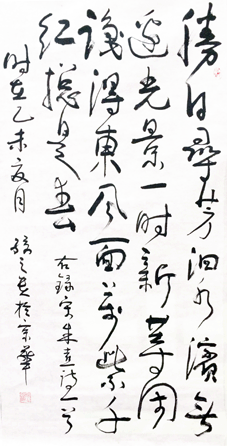 勝日尋芳泗水濱無
邊光景一时新等閒
識得東風面萬紫千
紅總是春 右錄宋朱熹詩一首
时在乙未夏月 於京華